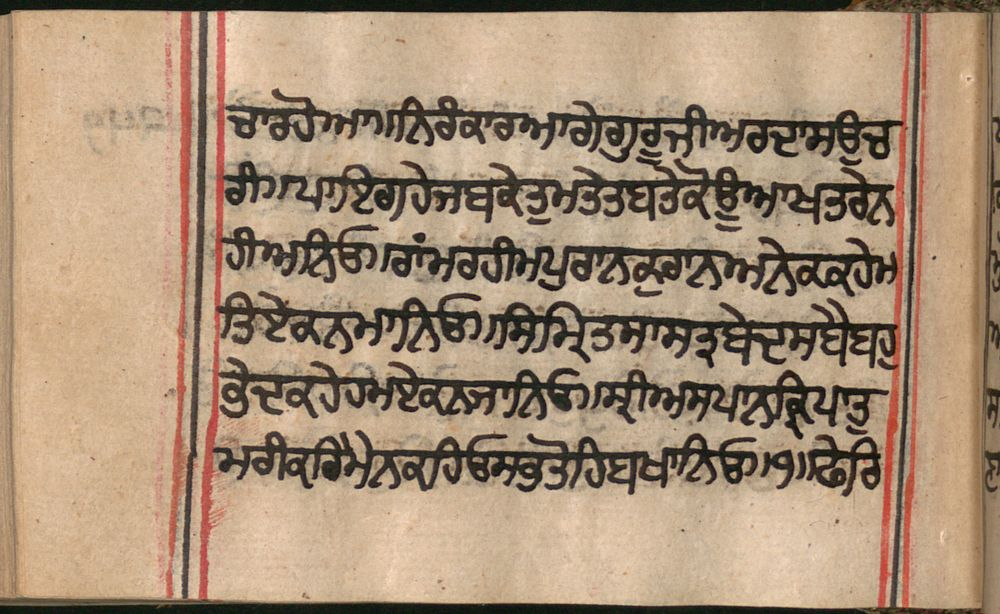 ਚਾਰਹੋਆ॥ਨਿਰੰਕਾਰਆਗੇਗੁਰੂਜੀਅਰਦਾਸਉਚ
ਰੀ॥ਪਾਇਗਹੇਜਬਕੇਤੁਮਤੇਤਬਤੇਕੋਊਆਖਤਰੇਨ
ਹੀਆਨਿਓ॥ਰਾਂਮਰਹੀਮਪੁਰਾਨਕੁਰਾਨਿਅਨੇਕਕਹੇਮ
ਤਿਏਕਨਮਾਨਿਓ॥ਸਿੰਮ੍ਰਿਤਸਾਸਤ੍ਰਬੇਦਸਬੈਬਹੁ
ਭੇਦਕਹੇਹਮਏਕਨਜਾਨਿਓ॥ਸ੍ਰੀਅਸਪਾਨਕ੍ਰਿਪਾਤੁ
ਮਰੀਕਰਿਮੈਨਕਹਿਓਸਭੁਤੋਹਿਬਖਾਨਿਓ॥੧॥ਫੇਰਿ